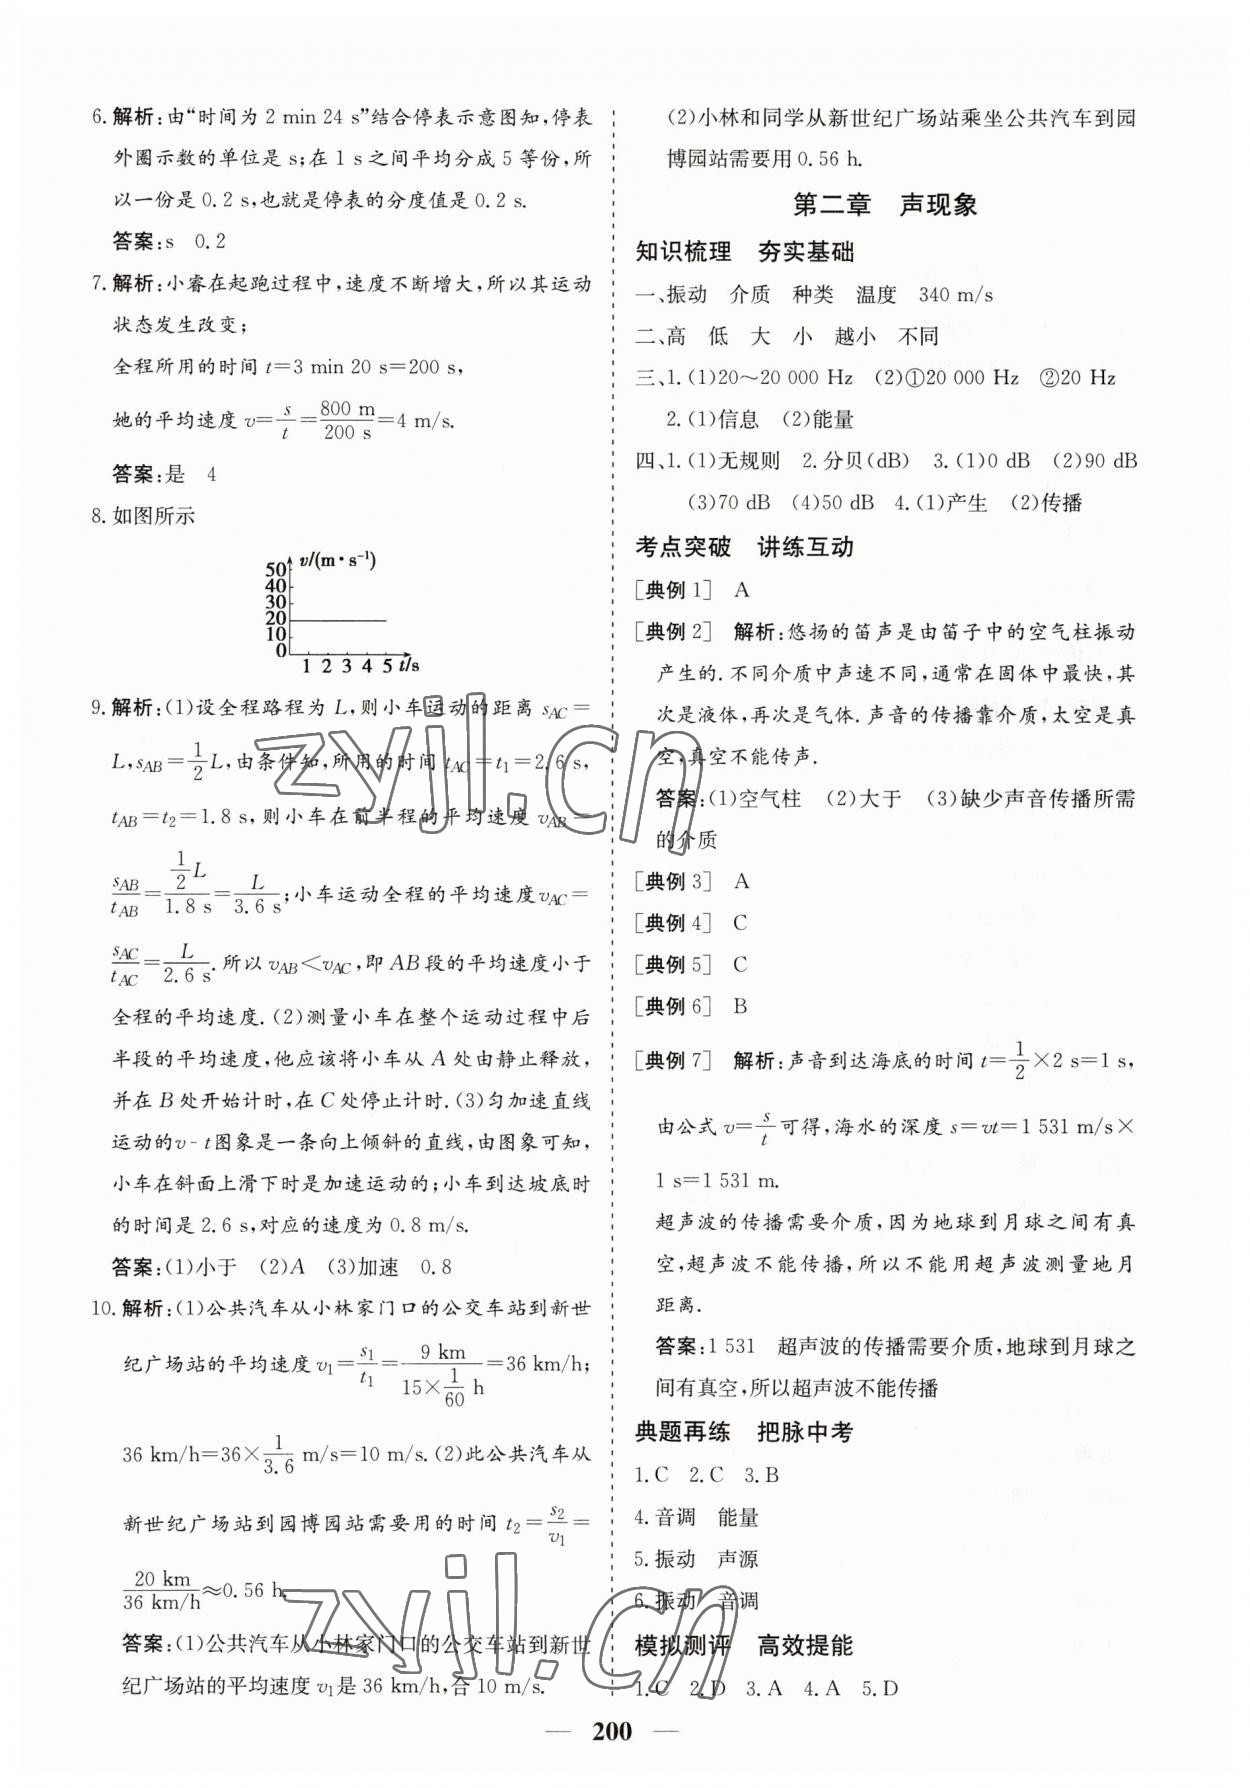 6. 解析:由“时间为 2 min 24 s”结合停表示意图知,停表
外圈示数的单位是 s;在 1 s 之间平均分成 5 等份,所
以一份是 0.2 s,也就是停表的分度值是 0.2 s.
答案:s 0.2
7. 解析:小睿在起跑过程中,速度不断增大,所以其运动
状态发生改变;
全程所用的时间 t=3 min 20 s=200 s,
她的平均速度 v=s/t=800 m/200 s=4 m/s.
答案:是 4
8. 如图所示
v/(m·s⁻¹)
50
40
30
20
10
0
1 2 3 4 5 t/s
9. 解析:(1)设全程路程为 L,则小车运动的距离 sAC=
L,sAB=1/2L,由条件知,所用的时间 tAC=t1=2.6 s,
tAB=t2=1.8 s,则小车在前半程的平均速度 vAB=
sAB/tAB=(1/2L)/1.8 s=L/3.6 s;小车运动全程的平均速度vAC=
sAC/tAC=L/2.6 s.所以 vAB<vAC,即 AB段的平均速度小于
全程的平均速度.(2)测量小车在整个运动过程中后
半段的平均速度,他应该将小车从 A 处由静止释放,
并在 B 处开始计时,在 C 处停止计时.(3)匀加速直线
运动的v-t图象是一条向上倾斜的直线,由图象可知,
小车在斜面上滑下时是加速运动的;小车到达坡底时
的时间是 2.6 s,对应的速度为 0.8 m/s.
答案:(1)小于 (2)A (3)加速 0.8
10. 解析:(1)公共汽车从小林家门口的公交车站到新世
纪广场站的平均速度 v1=s1/t1=9 km/(15×1/60 h)=36 km/h;
36 km/h=36×1/3.6 m/s=10 m/s.(2)此公共汽车从
新世纪广场站到园博园站需要用的时间 t2=s2/v1=
20 km/36 km/h≈0.56 h.
答案:(1)公共汽车从小林家门口的公交车站到新世
纪广场站的平均速度 v1是 36 km/h,合 10 m/s.
(2)小林和同学从新世纪广场站乘坐公共汽车到园
博园站需要用0.56 h.
第二章 声现象
知识梳理 夯实基础
一、振动 介质 种类 温度 340 m/s
二、高 低 大 小 越小 不同
三、1.(1)20～20 000 Hz (2)①20 000 Hz ②20 Hz
2.(1)信息 (2)能量
四、1.(1)无规则 2.分贝(dB) 3.(1)0 dB (2)90 dB
(3)70 dB (4)50 dB 4.(1)产生 (2)传播
考点突破 讲练互动
[典例 1] A
[典例 2] 解析:悠扬的笛声是由笛子中的空气柱振动
产生的.不同介质中声速不同,通常在固体中最快,其
次是液体,再次是气体.声音的传播靠介质,太空是真
空,真空不能传声.
答案:(1)空气柱 (2)大于 (3)缺少声音传播所需
的介质
[典例 3] A
[典例 4] C
[典例 5] C
[典例 6] B
[典例 7] 解析:声音到达海底的时间 t=1/2×2 s=1 s,
由公式 v=s/t可得,海水的深度 s=vt=1 531 m/s×
1 s=1 531 m.
超声波的传播需要介质,因为地球到月球之间有真
空,超声波不能传播,所以不能用超声波测量地月
距离.
答案:1 531 超声波的传播需要介质,地球到月球之
间有真空,所以超声波不能传播
典题再练 把脉中考
1.C 2.C 3.B
4.音调 能量
5.振动 声源
6.振动 音调
模拟测评 高效提能
1.C 2.D 3.A 4.A 5.D
— 200 —
zyjl.cn
zyjl.cn